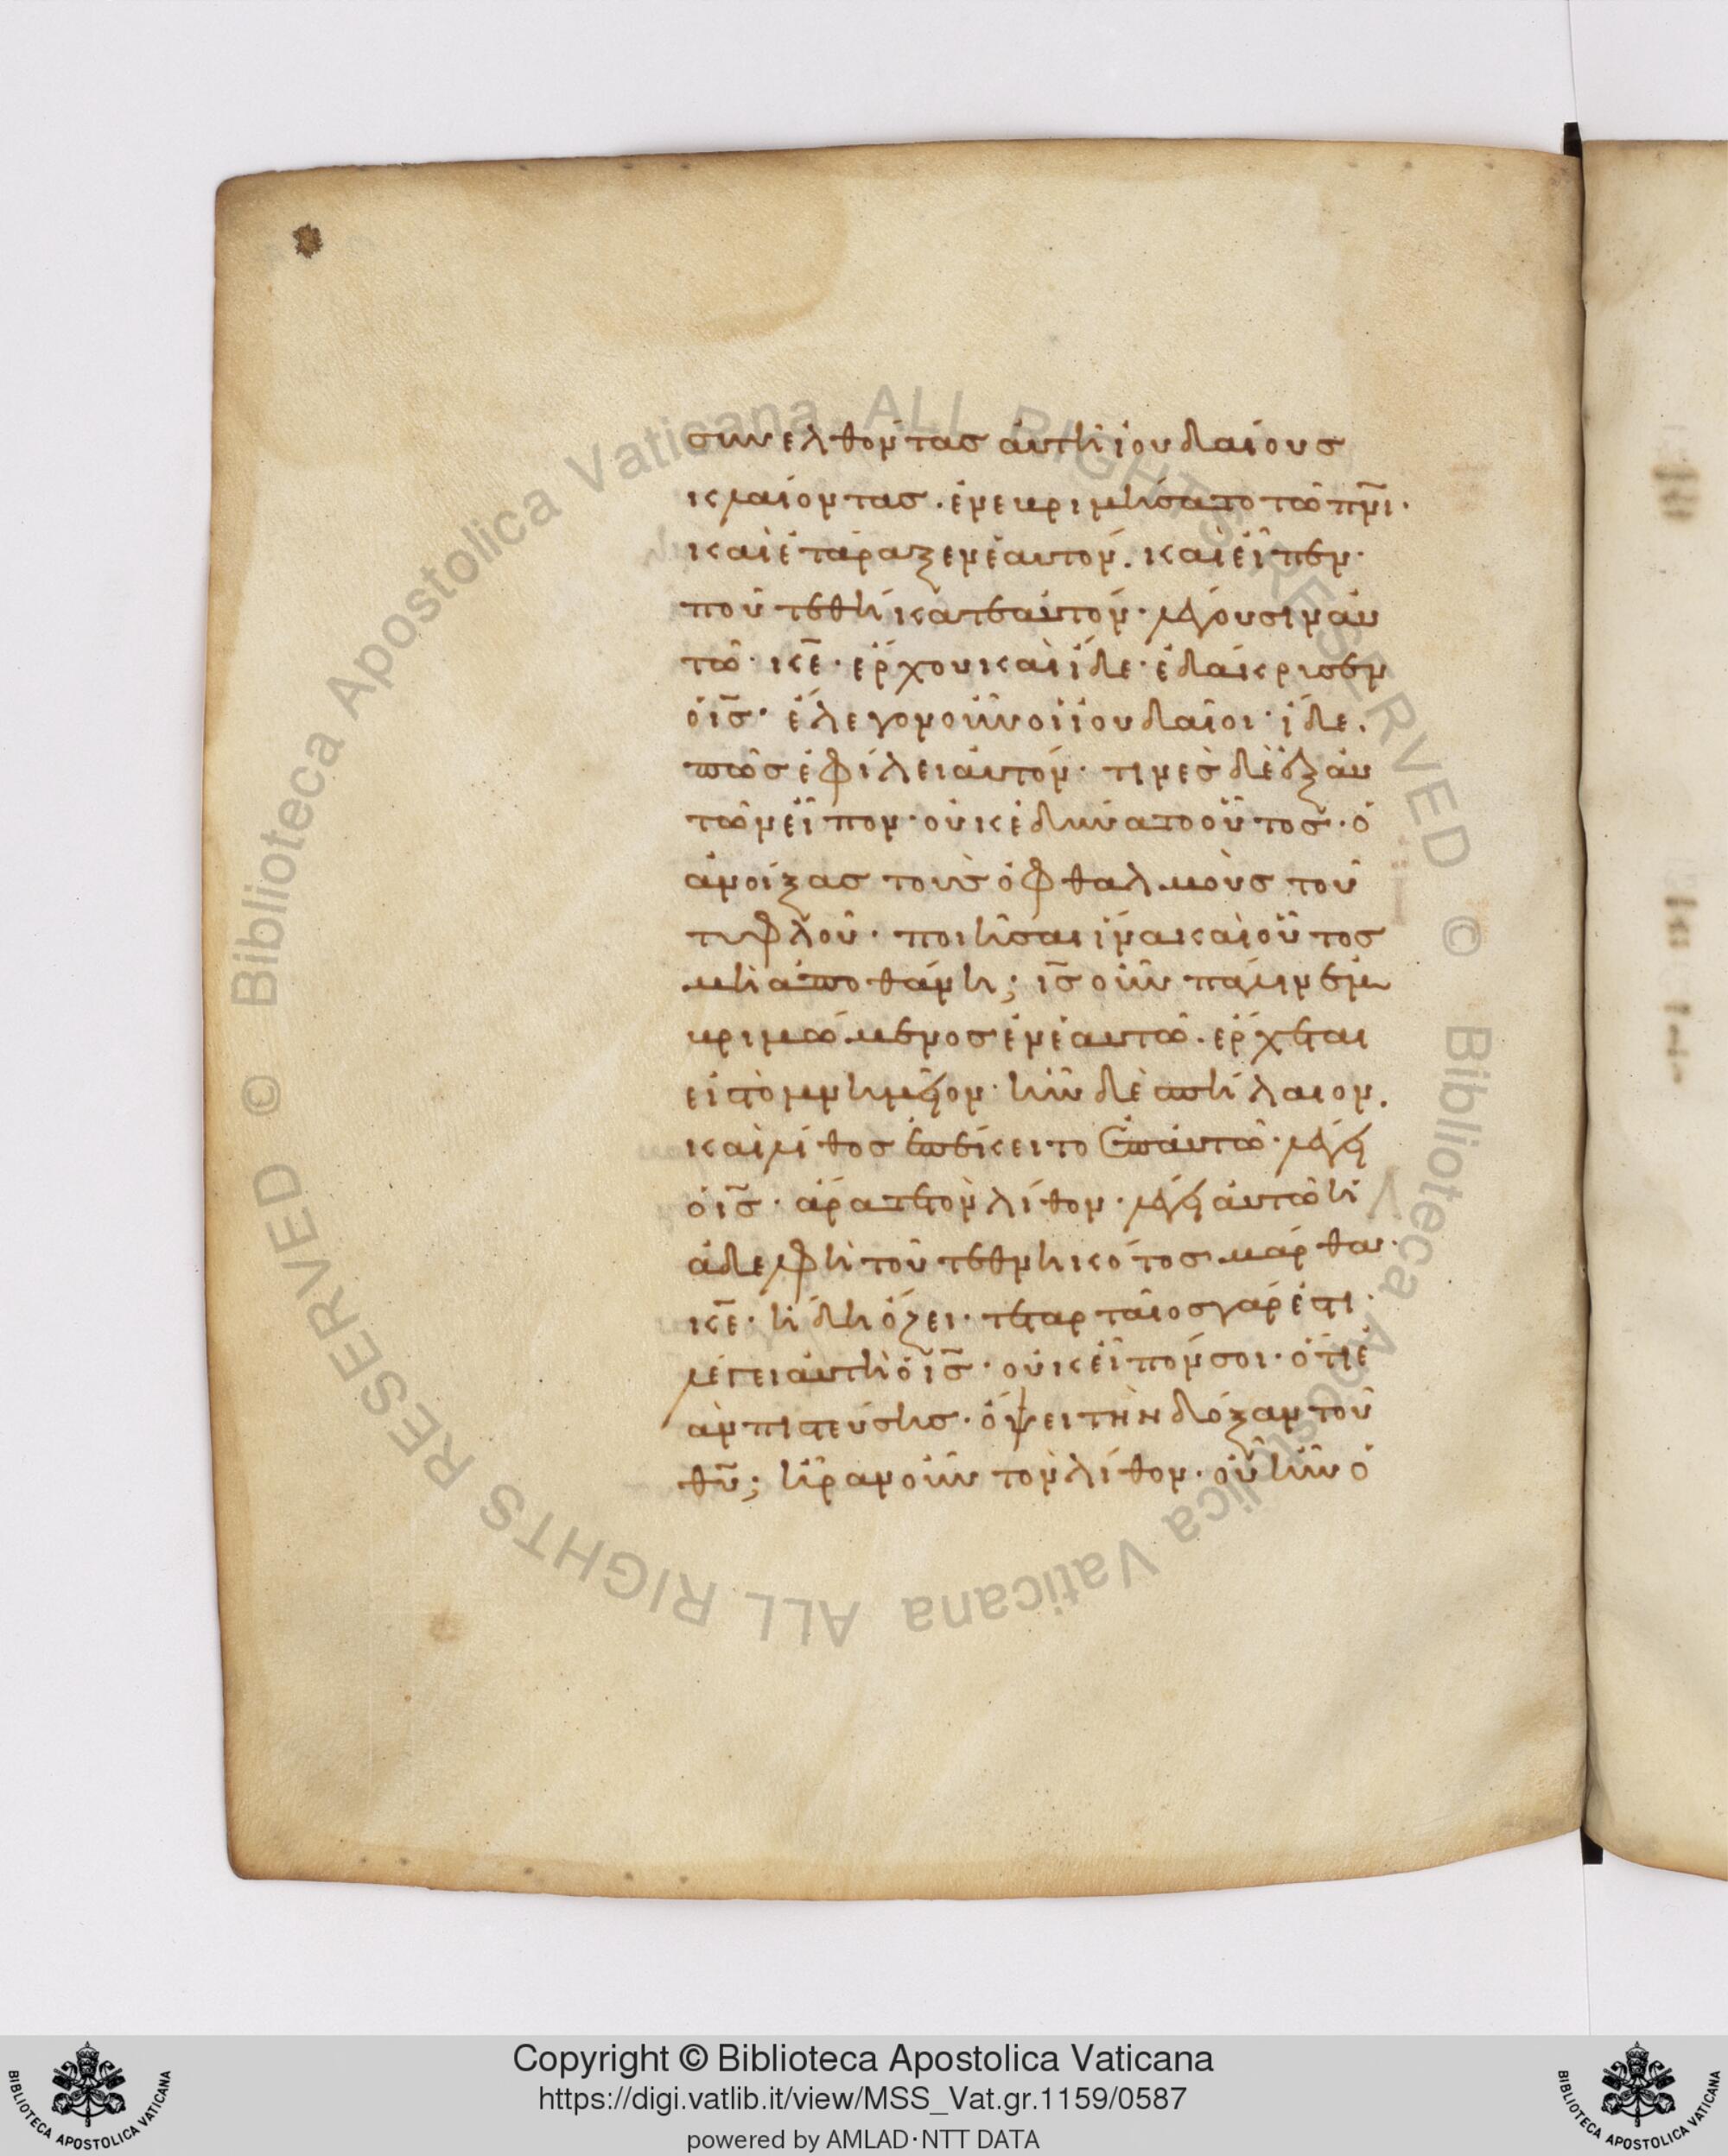 συνελθόντας ἀυτῆ ἰουδαίους
κλαίοντας· ἐνεβριμήσατο τῶ πνι·
καὶ ἐτάραξεν ἑαυτόν. καὶ εἶπεν·
ποῦ τεθήκατε ἀυτόν· λέγουσιν ἀυ
τῶ· κε· ἔρχου καὶ ἴδε· ἐδάκρυσεν
ὁ ις· ἔλεγον οὖν οἱ ἰουδαῖοι· ἴδε.
πῶς ἐφίλει ἀυτόν· τινὲς δὲ ἐξ ἀυ
τῶν εἶπον· οὐκ ἐδύνατο οὗτος· ὁ
ἀνοίξας τοὺς ὀφθαλμοὺς τοῦ
τυφλοῦ· ποιῆσαι ἵνα καὶ οὗτος
μὴ ἀποθάνη; ις οὖν πάλιν ἐμ
βριμώμενος ἐν ἑαυτῶ· ἔρχεται
εἰς τὸ μνημεῖον· ἦν δὲ σπήλαιον.
καὶ λίθος ἐπέκειτο ἐπ ἀυτῶ· λέγει
ὁ ις· ἄρατε τὸν λίθον· λέγει ἀυτῶ ἡ
ἀδελφὴ τοῦ τεθνηκότος μάρθα·
κε· ἤδη ὄζει· τεταρταῖος γάρ ἐστι·
λέγει ἀυτῆ ὁ ις· οὐκ εἶπόν σοι· ὅτι ἐ
ὰν πιστεύσης· ὄψει τὴν δόξαν τοῦ
θυ; ἦραν οὖν τὸν λίθον· οὗ ἦν ὁ
Copyright © Biblioteca Apostolica Vaticana
https://digi.vatlib.it/view/MSS_Vat.gr.1159/0587
powered by AMLAD·NTT DATA
BIBLIOTECA APOSTOLICA VATICANA
BIBLIOTECA APOSTOLICA VATICANA
© Biblioteca Apostolica Vaticana ALL RIGHTS RESERVED © Biblioteca Apostolica Vaticana ALL RIGHTS RESERVED